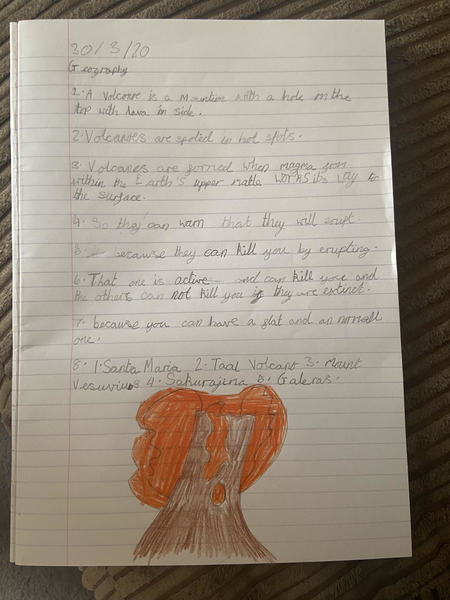 30/3/20
Geography
1. A Volcanoe is a Mountine with a hole in the
top with lava in side.
2. Volcanoes are spoted in hot spots.
3. Volcanoes are formed when magma from
within the Earth's upper matle works its way to
the surface.
4. So they can warn that they will erupt.
5. because they can kill you by erupting.
6. That one is active and can kill you and
the others can not kill you if they are extinct.
7. because you can have a flat and an normall
one.
8. 1. Santa Maria 2. Taal Volcano 3. Mount
Vesuvius 4. Sakurajina 5. Galeras.